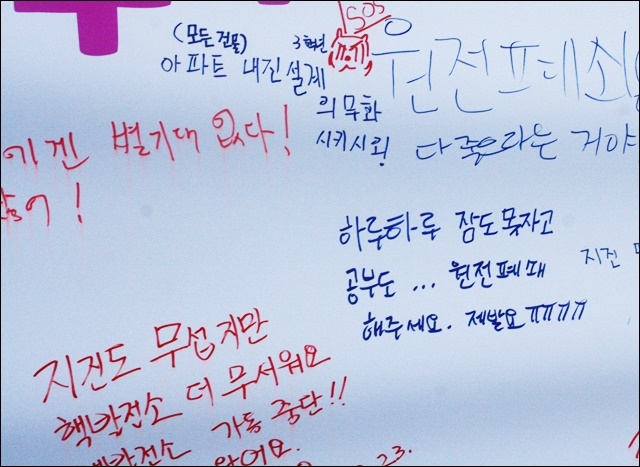 SOS
(모든건물)
3학년
아파트 내진설계
의무화
시키시죄!
원전폐쇠
다죽으라는 거야
에겐 별기대 없다!
않어!
하루하루 잠도못자고
공부도 ... 원전폐쇄
해주세요. 제발요ㅠㅠㅠㅠ
지진
지진도 무섭지만
핵발전소 더 무서워요
발전소 가동 중단!!
왔어요.
23.